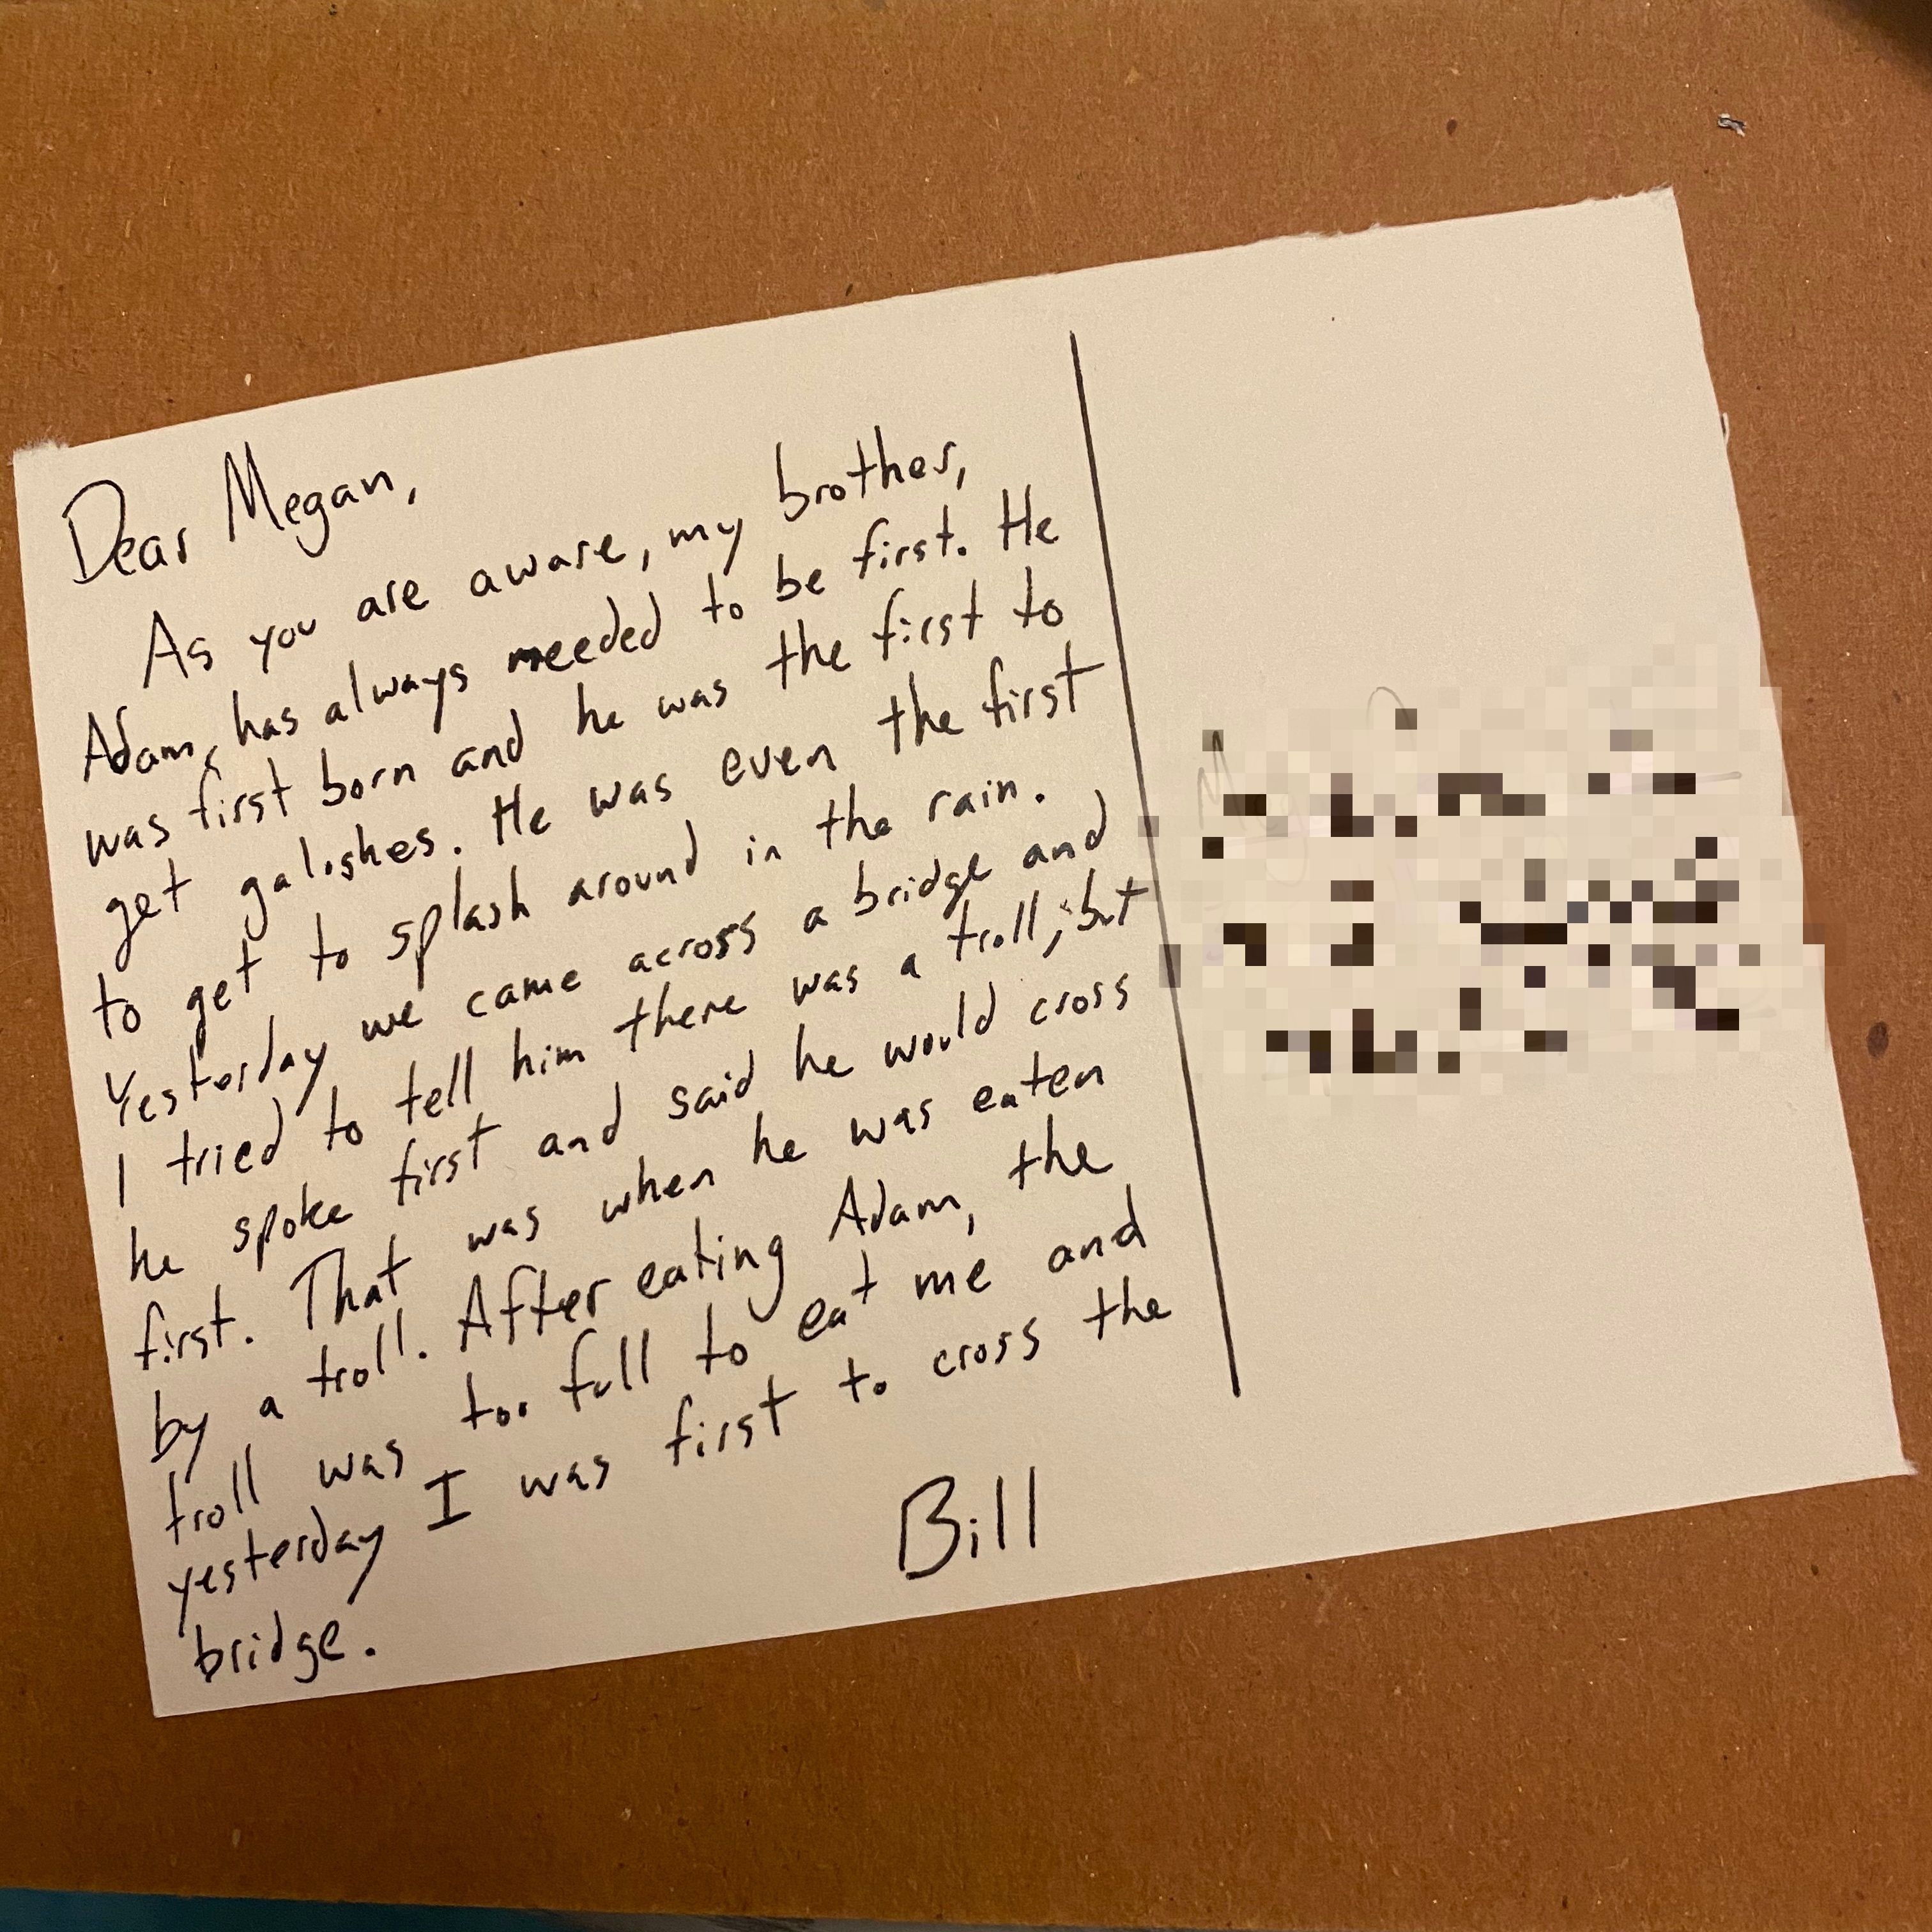 Dear Megan,
As you are aware, my brother,
Adam, has always needed to be first. He
was first born and he was the first to
get galoshes. He was even the first
to get to splash around in the rain.
Yesterday we came across a bridge and
I tried to tell him there was a troll, but
he spoke first and said he would cross
first. That was when he was eaten
by a troll. After eating Adam, the
troll was too full to eat me and
yesterday I was first to cross the
bridge.
Bill